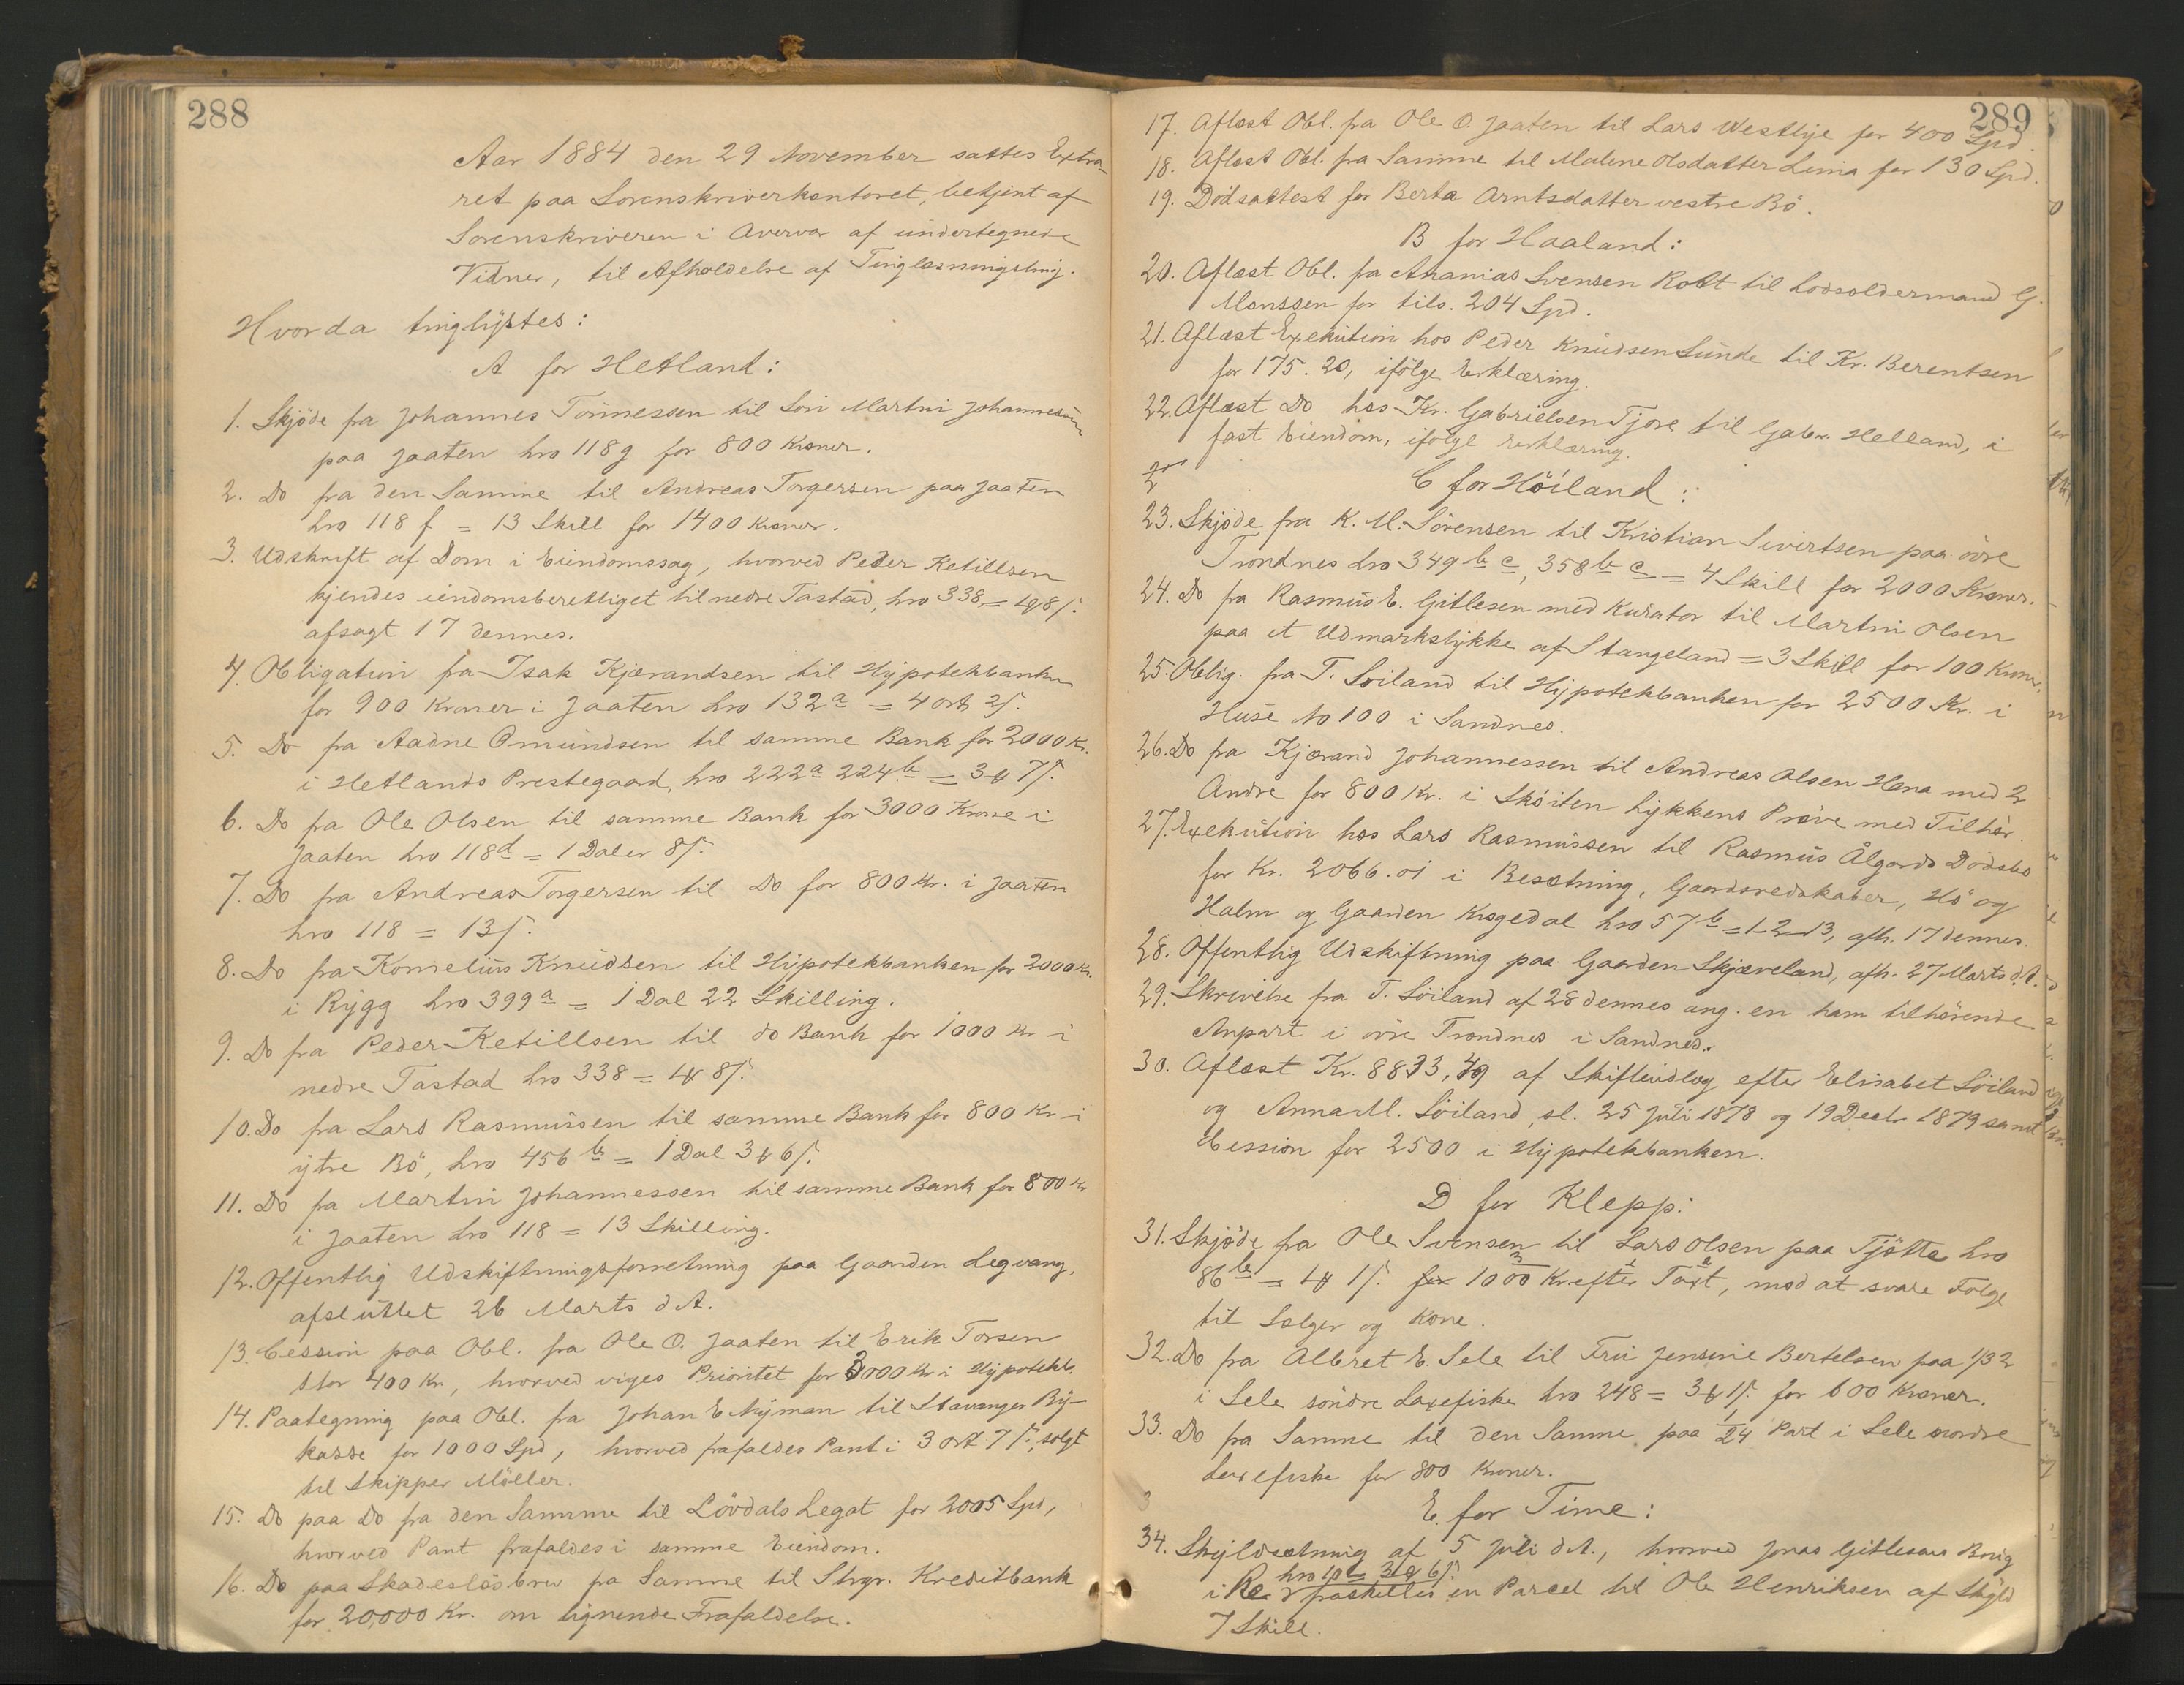 288
Aar 1884 den 29 November sattes Extra-
ret paa Sorenskriverkontoret, betjent af
Sorenskriveren i Overvær af undertegnede
Vidner, til Afholdelse af Tinglæsningsthing.
Hvorda tinglystes:
A for Hetland:
1. Skjøde fra Johannes Tønnessen til Søn Martin Johannessen
paa Jaaten Lno 118g for 800 Kroner.
2. Do fra den Samme til Andreas Torgersen paa Jaaten
Lno 118 f = 13 Skill for 1400 Kroner.
3. Udskrift af Dom i Eiendomssag, hvorved Peder Ketillsen
kjendes eiendomsberettiget til nedre Tastad, Lno 338 = 1 8 s.
afsagt 17 dennes.
4. Obligation fra Isak Kjærandsen til Hypotekbanken
for 900 Kroner i Jaaten Lno 132 a = 4 ort 2 s.
5. Do fra Aadne Omundsen til samme Bank for 2000 Kr.
i Hetlands Prestegaard, Lno 222 a 224 b = 3 7 s.
6. Do fra Ole Olsen til samme Bank for 3000 Krone i
Jaaten Lno 118 d = 1 Daler 8 s.
7. Do fra Andreas Torgersen til Do for 800 Kr. i Jaaten
Lno 118 = 13 s.
8. Do fra Kornelius Knudsen til Hypotekbanken for 2000 Kr.
i Rygg Lno 399 a = 1 Dal 22 Skilling.
9. Do fra Peder Ketillsen til do Bank for 1000 Kr i
nedre Tastad Lno 338 = 1 8 s.
10. Do fra Lars Rasmussen til samme Bank for 800 Kr i
ytre Bø, Lno 456 b = 1 Dal 3 6 s.
11. Do fra Martin Johannessen til samme Bank for 800 Kr
i Jaaten Lno 118 = 13 Skilling.
12. Offentlig Udskiftningsforretning paa Gaarden Legvang,
afsluttet 26 Marts d. A.
13. Cession paa Obl. fra Ole O. Jaaten til Erik Torsen
stor 400 Kr, hvorved viges Prioritet for 3000 Kr i Hypotekb.
14. Paategning paa Obl. fra Johan E Nyman til Stavanger By-
kasse for 1000 Spd, hvorved frafaldes Pant i 3 ort 7 s., solgt
til Skipper Møller.
15. Do paa Do fra den Samme til Løvdals Legat for 2005 Spd,
hvorved Pant frafaldes i samme Eiendom.
16. Do paa Skadesløsbrev fra Samme til Stvgr. Kreditbank
for 20,000 Kr. om lignende Frafaldelse.
289
17. Aflæst Obl. fra Ole O. Jaaten til Lars Westlye for 400 Spd.
18. Aflæst Obl. fra Samme til Malene Olsdatter Lima for 130 Spd.
19. Dødsattest for Berta Arntsdatter vestre Bø.
B for Haaland:
20. Aflæst Obl. fra Ananias Svensen Rott til Lodsoldermand G.
Monssen for tils. 204 Spd.
21. Aflæst Exekution hos Peder Knudsen Sunde til Kr. Berentsen
for 175.20, ifølge Erklæring.
22. Aflæst Do hos Kr. Gabrielsen Tjore til Gabr. Helland, i
fast Eiendom, ifølge Erklæring.
C for Höiland:
23. Skjøde fra K. M. Sørensen til Kristian Sivertsen paa øvre
Trondnes Lno 349 b c, 358 b c = 4 Skill for 2000 Kroner.
24. Do fra Rasmus E. Gitlesen med Kurator til Martin Olsen
paa et Udmarkstykke af Stangeland = 3 Skill for 100 Kroner.
25. Oblig. fra T. Soiland til Hypotekbanken for 2500 Kr. i
Huse No 100 i Sandnes.
26. Do fra Kjærand Johannessen til Andreas Olsen Hana med 2
Andre for 800 Kr. i Skøiten Lykkens Prøve med Tilhør.
27. Exekution hos Lars Rasmussen til Rasmus Ålgaards Dødsbo
for Kr. 2066.01 i Besætning, Gaardsredskaber, Hø og
Halm og Gaarden Krogedal Lno 57 b = 1-2-13, afh. 17 dennes.
28. Offentlig Udskiftning paa Gaarden Skjæveland, afh. 27 Marts d. A.
29. Skrivelse fra T. Söiland af 28 dennes ang. en ham tilhørende
Anpart i øvre Trondnes i Sandnes.
30. Aflæst Kr. 8833,49 af Skifteudlæg efter Elisabet Söiland
og Anna M. Söiland, sl. 25 Juli 1878 og 19 Decbr 1879 samt
Cession for 2500 i Hypotekbanken.
D for Klepp:
31. Skjøde fra Ole Svensen til Lars Olsen paa Tjøtta Lno
86 b = 1 1 s. for 1000 Kr. efter Taxt, mod at svare Følge
til Sælger og Kone.
32. Do fra Albret E. Sele til Fru Jensine Bertelsen paa 1/32
i Sele söndre Laxefiske Lno 248 = 3 1 s. for 600 Kroner.
33. Do fra Samme til den Samme paa 1/24 Part i Sele nordre
Laxefiske for 800 Kroner.
E for Time:
34. Skyldsætning af 5 Juli d. A., hvorved Jonas Gitlesens Brug
i Re fraskilles en Parcel til Ole Henriksen af Skyld
7 Skill.